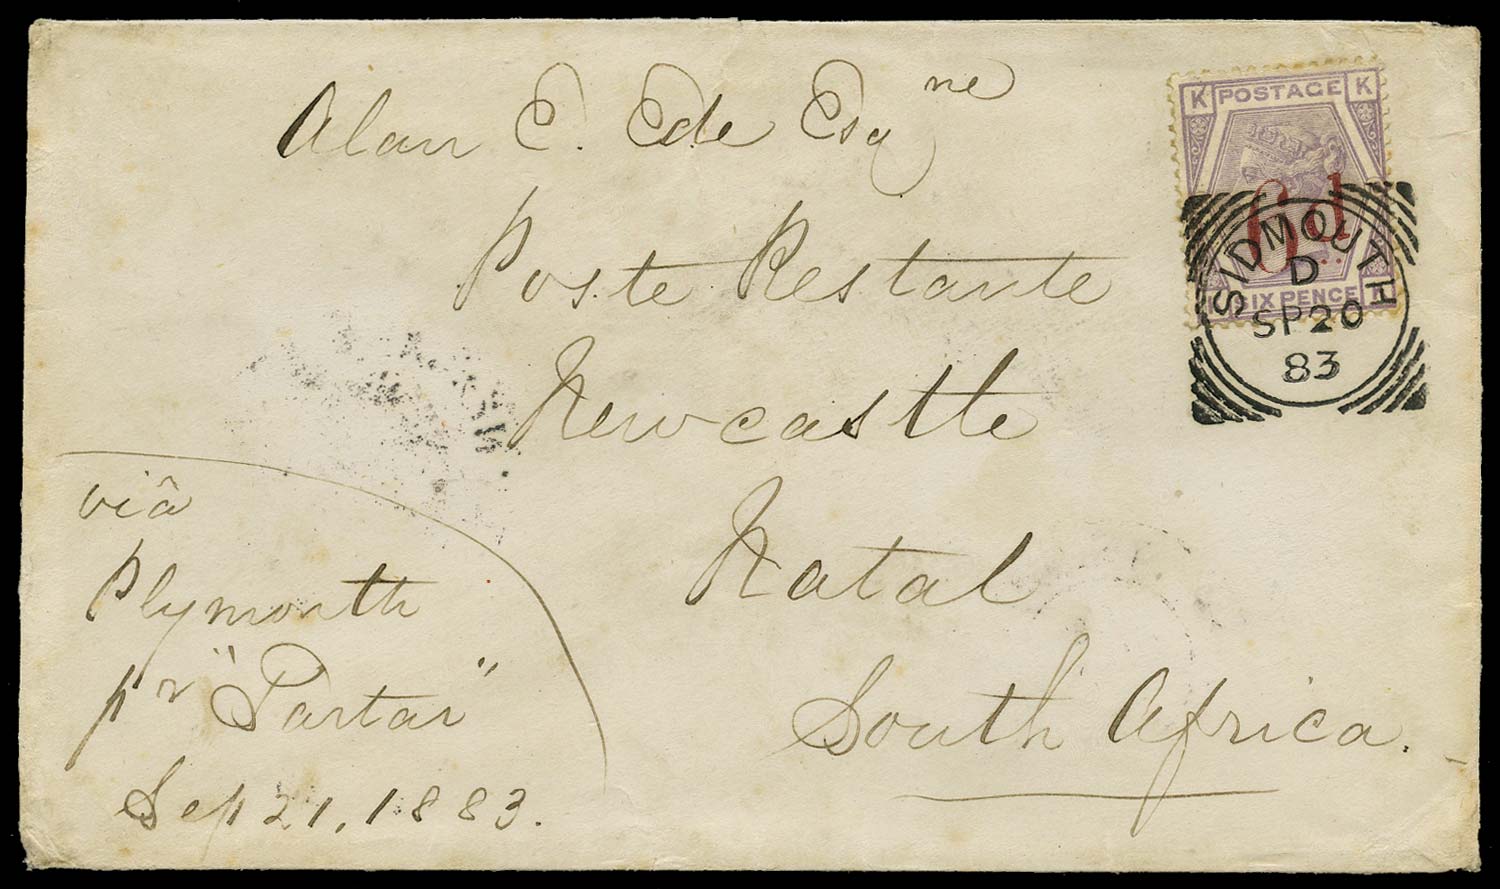 Alan E. Ede Esqre
Poste Restante
Newcastle
Natal
South Africa.
viâ
Plymouth
pr "Tartar"
Sep 21, 1883.
K POSTAGE K
6d
SIX PENCE
SIDMOUTH
D
SP 20
83